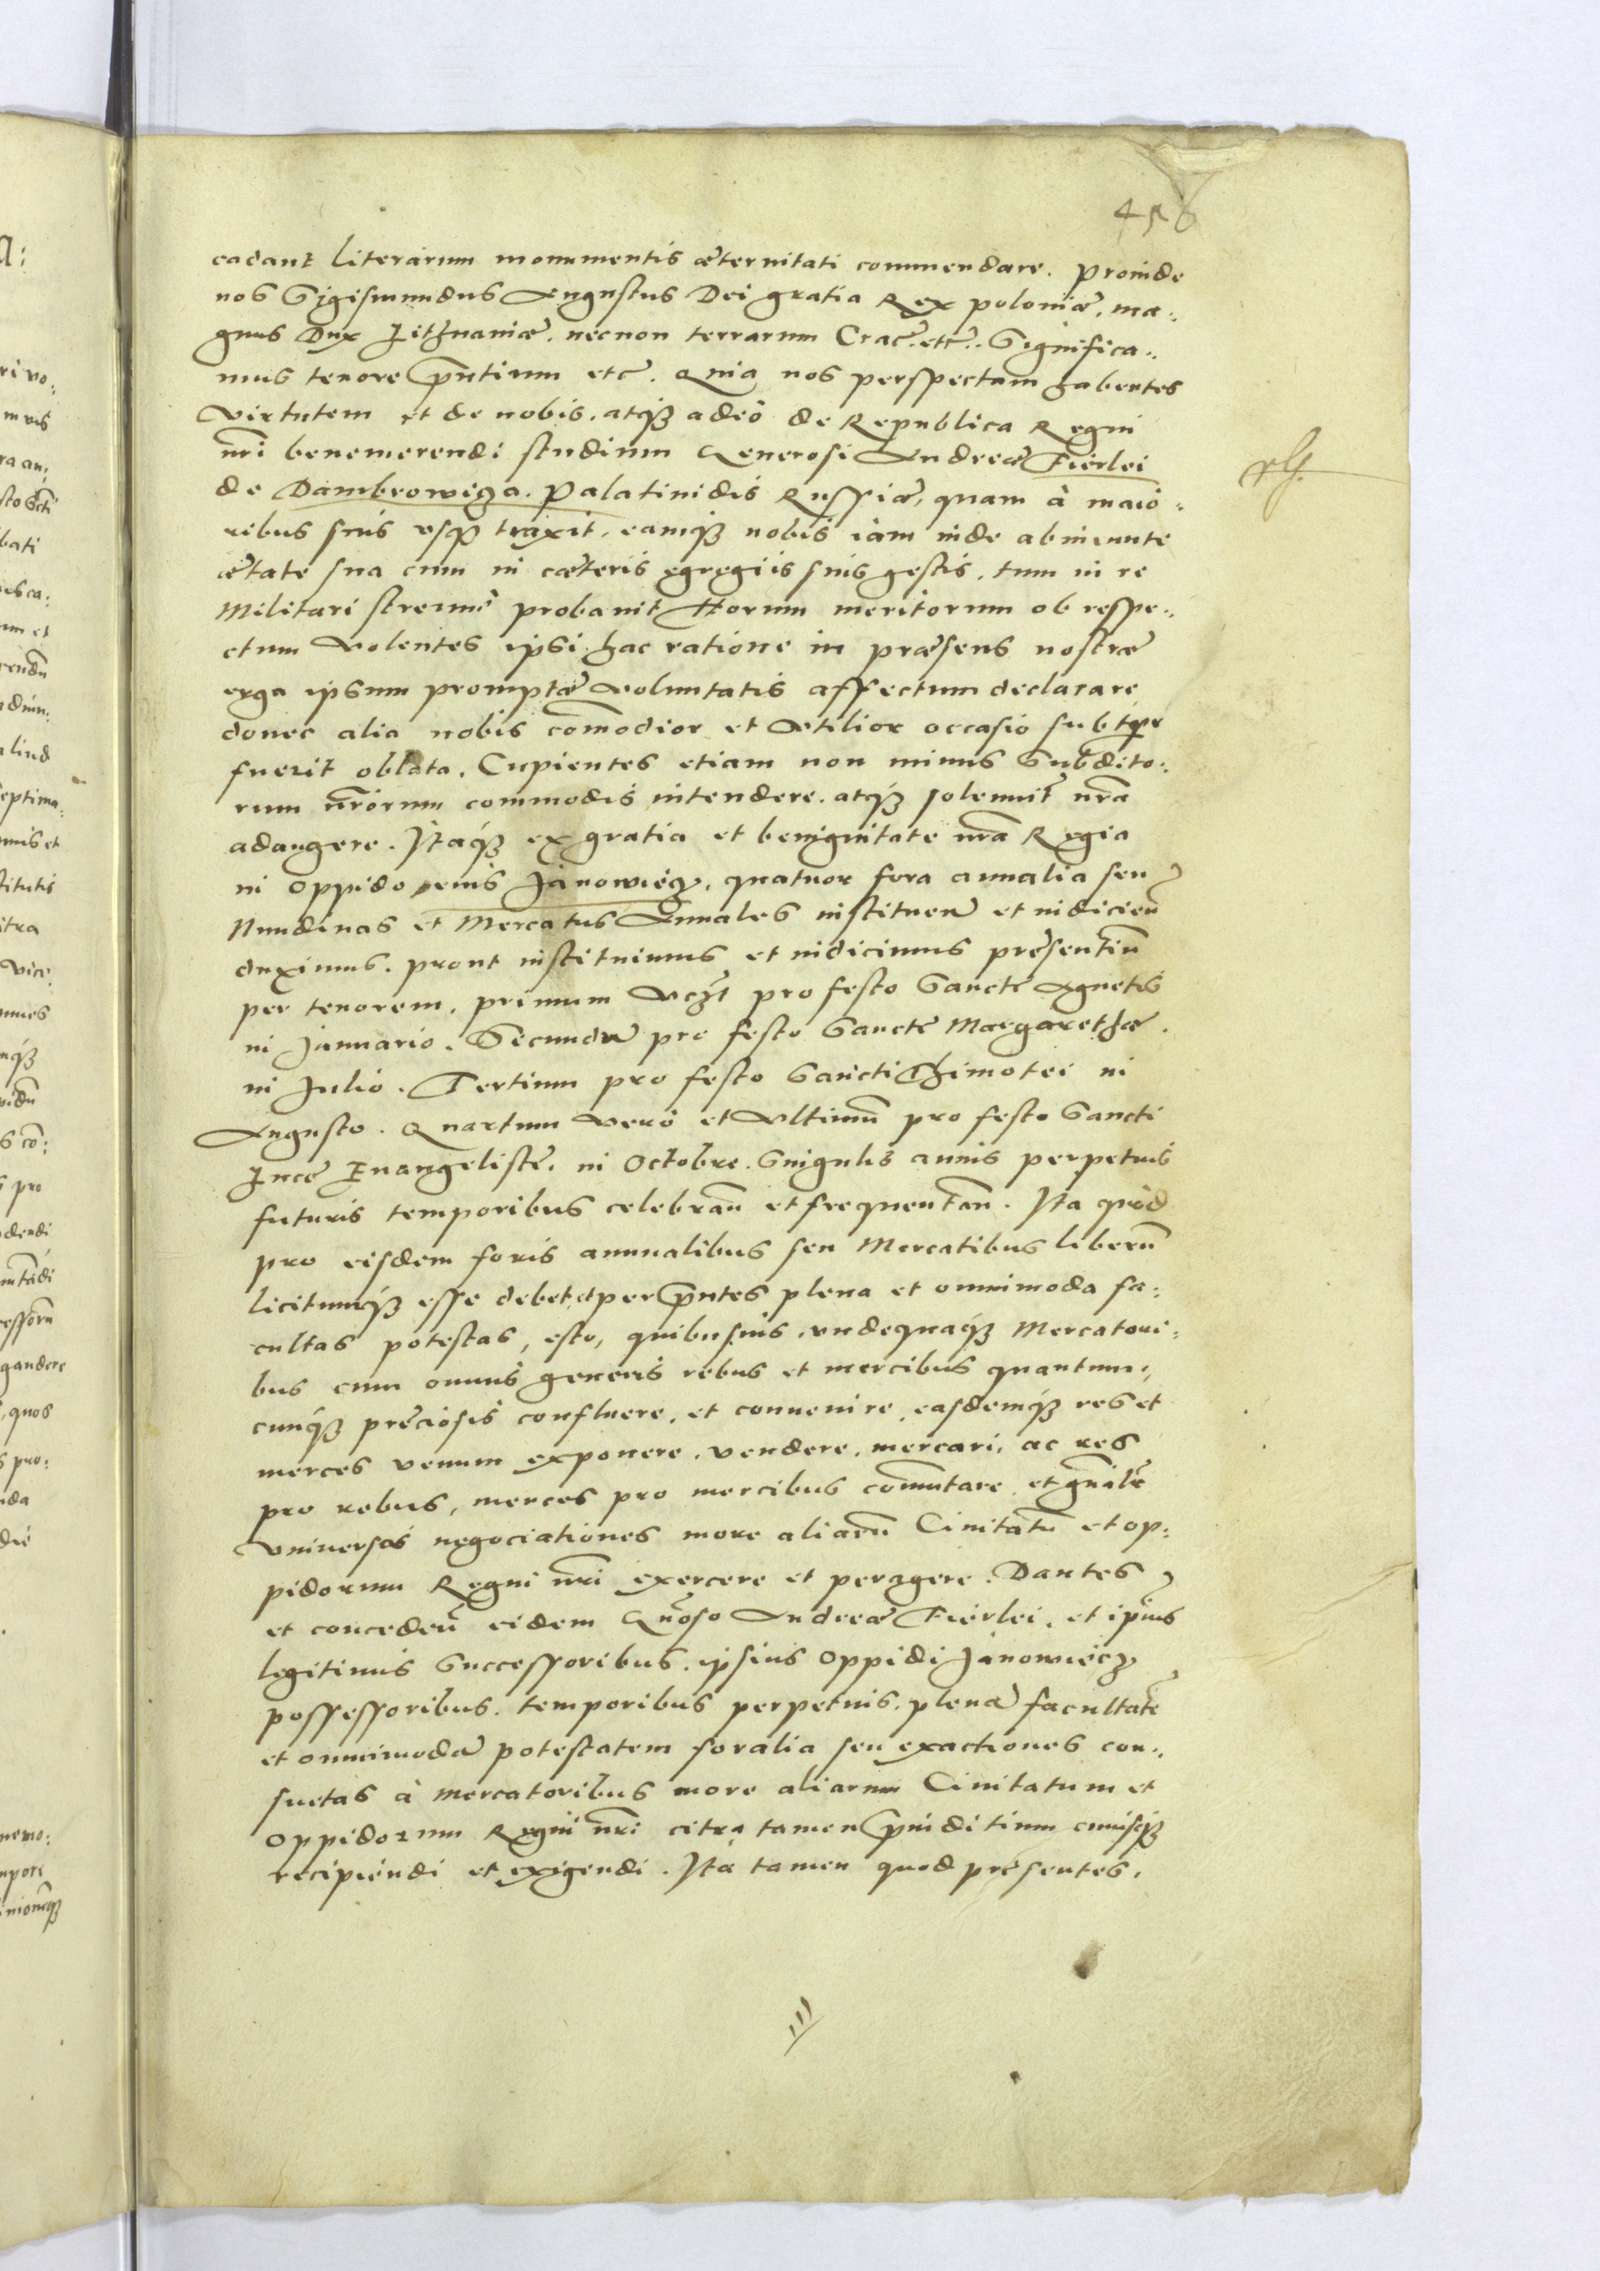 456
cadant literarum monumentis æternitati commendare. Proinde
nos Sigismundus Augustus Dei gratia Rex poloniæ, ma:
gnus Dux Lithuaniæ. necnon terrarum Crac. etc. Significa:
mus tenore p̄ntium etc. Quia nos perspectam habentes
virtutem et de nobis. atq3 adeò de Republica Regni
nr̄i benemerendi studium Generosi Andreæ Fierlei
de Dambrowicza. Palatinidis Russiæ, quam à maio:
ribus suis usq3 traxit, eamq3 nobis iam inde ab ineunte
ætate sua cum in cæteris egregiis suis gestis, tum in re
Militari strenuè probauit Horum meritorum ob respe:
ctum volentes ipsi hac ratione in præsens nostræ
erga ipsum promptæ voluntatis affectum declarare
donec alia nobis com̄odior et utilior occasio
fuerit oblata. Cupientes etiam non minus Subdito:
rum nr̄orum commodis intendere. atq3 nr̄a
adaugere. Itaq3 ex gratia et benignitate nr̄a Regia
in oppido eius Janowiecz, quatuor fora annalia seu
Nundinas et Mercatus Annales instituen̄ et indicien̄
duximus. prout instituimus et indicimus presentiū
per tenorem. primum vczt pro festo Sanctę Agnetis
in Januario. Secundū pro festo Sanctę Margarethæ.
in Julio. Tertium pro festo Sancti Thimotei in
Augusto. Quartum verò et Ultimū pro festo Sancti
Lucę Euangelistę. in Octobre. Singulis annis perpetuis
futuris temporibus celebran̄ et frequentan̄. Ita quòd
pro eisdem foris annualibus seu Mercatibus liberū
licitumq3 esse debet et per p̄ntes plena et omnimoda fa:
cultas potestas, esto, quibusuis undequaq3 Mercatori:
bus cum omnis generis rebus et mercibus quantum:
cunq3 prẹciosis confluere, et conuenire, easdemq3 res et
merces venum exponere, vendere, mercari, ac res
pro rebus, merces pro mercibus com̄utare et gn̄alr
vniversas negociationes more aliarū Ciuitatū et op:
pidorum Regni nr̄i exercere et peragere. Dantes
et conceden̄ eidem Gn̄oso Andreæ Fierlei, et ipsius
legitimis Successoribus. ipsius Oppidi Janowiecz
possessoribus. temporibus perpetuis. plenā facultatē
et omnimodā potestatem foralia seu exactiones con:
suetas à mercatoribus more aliarum Ciuitatum et
oppidorum Regni nr̄i citra tamen p̄iuditium cuiusq3
recipiendi et exigendi. Ita tamen quod presentes.